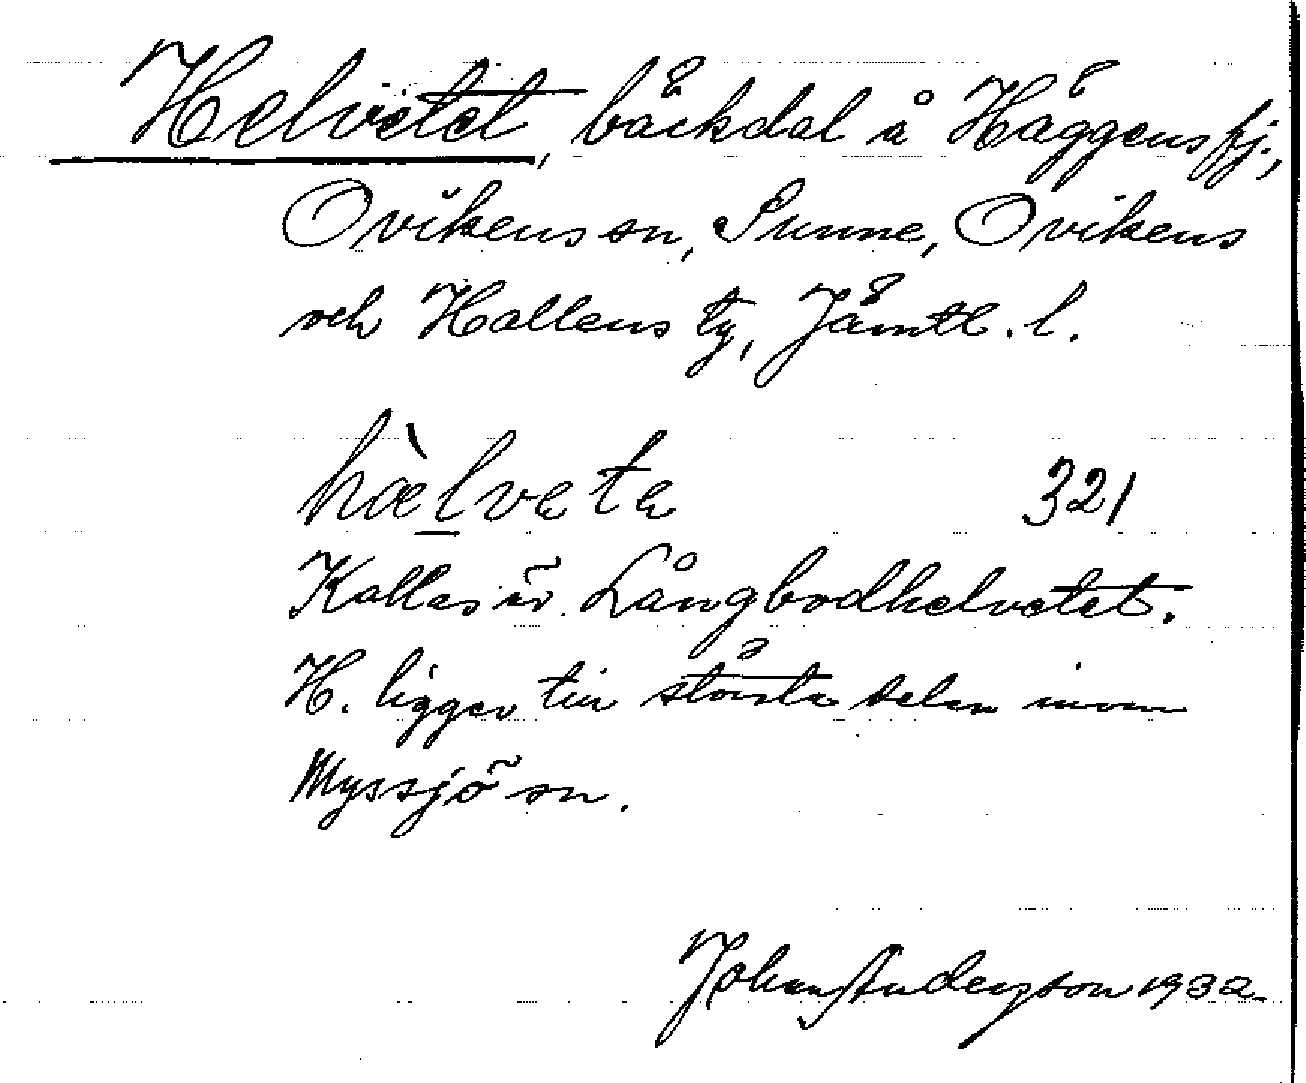 Helvetet, bäckdal å Häggensfj.,
Ovikens sn, Sunne, Ovikens
och Hallens tg, Jämtl. l.
hæ̀lvete 321
Kallas äv. Långbodhelvetet.
H. ligger till största delen inom
Myssjö sn.
Johan Anderzson 1932